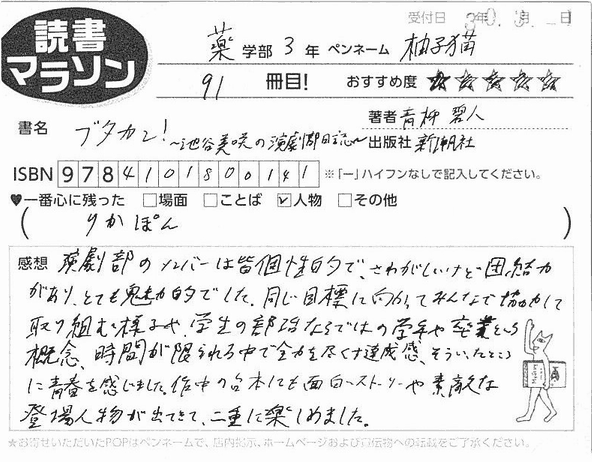 読書
マラソン
受付日 30年 月 日
薬 学部 3 年 ペンネーム 柚子猫
91 冊目! おすすめ度 ★★★★★
著者 青柳 碧人
書名 ブタカン! ~池谷美咲の演劇部日誌~ 出版社 新潮社
ISBN 9784101800141 ※「-」ハイフンなしで記入してください。
♥一番心に残った □場面 □ことば ☑人物 □その他
( りかぽん )
感想 演劇部のメンバーは皆個性的で、さわがしいけど団結力
があり、とても魅力的でした。同じ目標に向かってみんなで協力して
取り組む様子や、学生の部活ならではの学年や卒業という
概念、時間が限られる中で全力を尽くす達成感、そういったところ
に青春を感じました。作中の台本にも面白いストーリーや素敵な
登場人物が出てきて、二重に楽しめました。
★お寄せいただいたPOPはペンネームで、店内掲示、ホームページおよび宣伝物への転載をご了承ください。